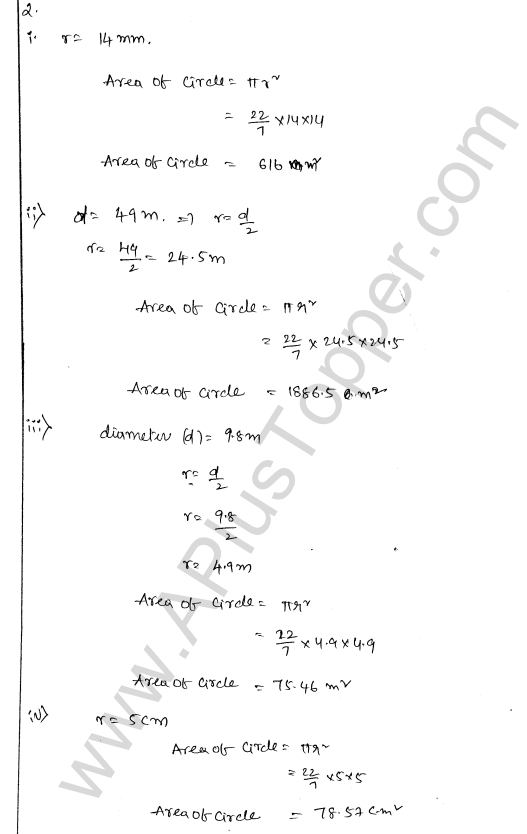 2.
i. r = 14 mm.
Area of Circle = πr²
= 22/7 × 14 × 14
Area of Circle = 616 mm²
ii> d = 49 m. ⇒ r = d/2
r = 49/2 = 24.5 m
Area of Circle = πr²
= 22/7 × 24.5 × 24.5
Area of Circle = 1886.5 m²
iii> diameter (d) = 9.8 m
r = d/2
r = 9.8/2
r = 4.9 m
Area of Circle = πr²
= 22/7 × 4.9 × 4.9
Area of Circle = 75.46 m²
iv> r = 5 cm
Area of Circle = πr²
= 22/7 × 5 × 5
Area of Circle = 78.57 cm²
www.APlusTopper.com